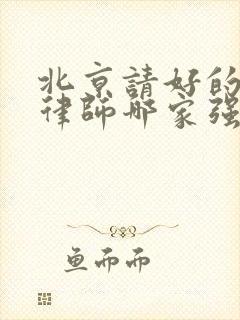 北京請好的
律師哪家强
鱼而而